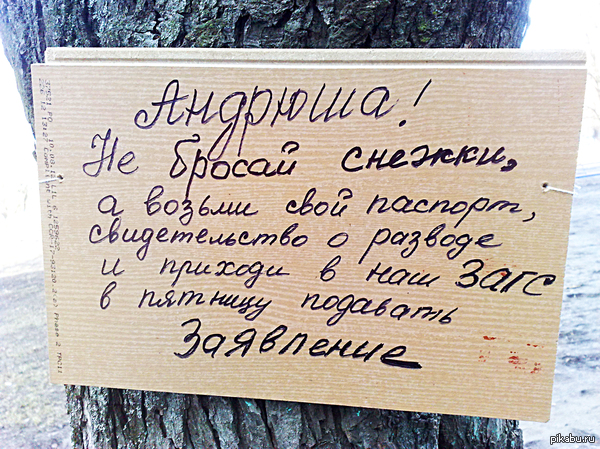 Андрюша!
Не бросай снежки,
а возьми свой паспорт,
свидетельство о разводе
и приходи в наш ЗАГС
в пятницу подавать
Заявление
pikabu.ru